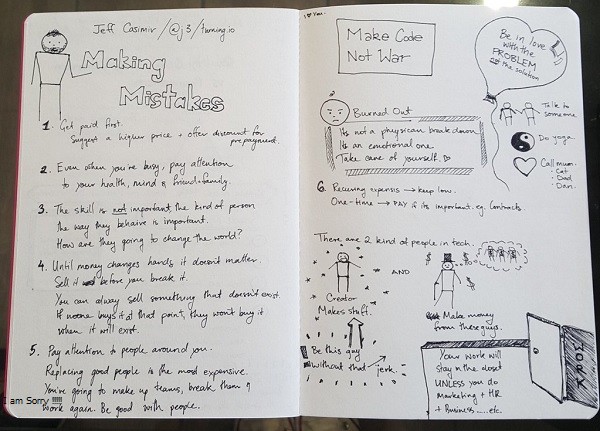 Jeff Casimir / @j3 / turning.io
Making
Mistakes
1. Get paid first.
Suggest a higher price + offer discount for
prepayment.
2. Even when you're busy, pay attention
to your health, mind & friend + family.
3. The skill is not important, the kind of person
the way they behaive is important.
How are they going to change the world?
4. Until money changes hands it doesn't matter.
Sell it before you break it.
You can alway sell something that doesn't exist.
If noone buys it at that point, they won't buy it
when it will exist.
5. Pay attention to people around you.
Replacing good people is the most expensive.
You're going to make up teams, break them
work again. Be good with people.
I am Sorry !!!!!
Make Code
Not War
Be in love
with the
PROBLEM
not the solution
Burned Out
Its not a physican break down
Its an emotional one.
Take care of yourself.
Talk to
someone.
Do yoga.
Call mum.
· Cat
· Dad
· Dan.
6. Recuring expensis → keep low.
One-time → PAY if its important. eg. Contracts
There are 2 kind of people in tech.
AND
$ $ $
Creator
Makes stuff.
Make money
from these guys.
Be this guy
without that jerk.
Your work will
stay n the closet
UNLESS you do
Marketing + HR
+ Business ..... etc.
WORK